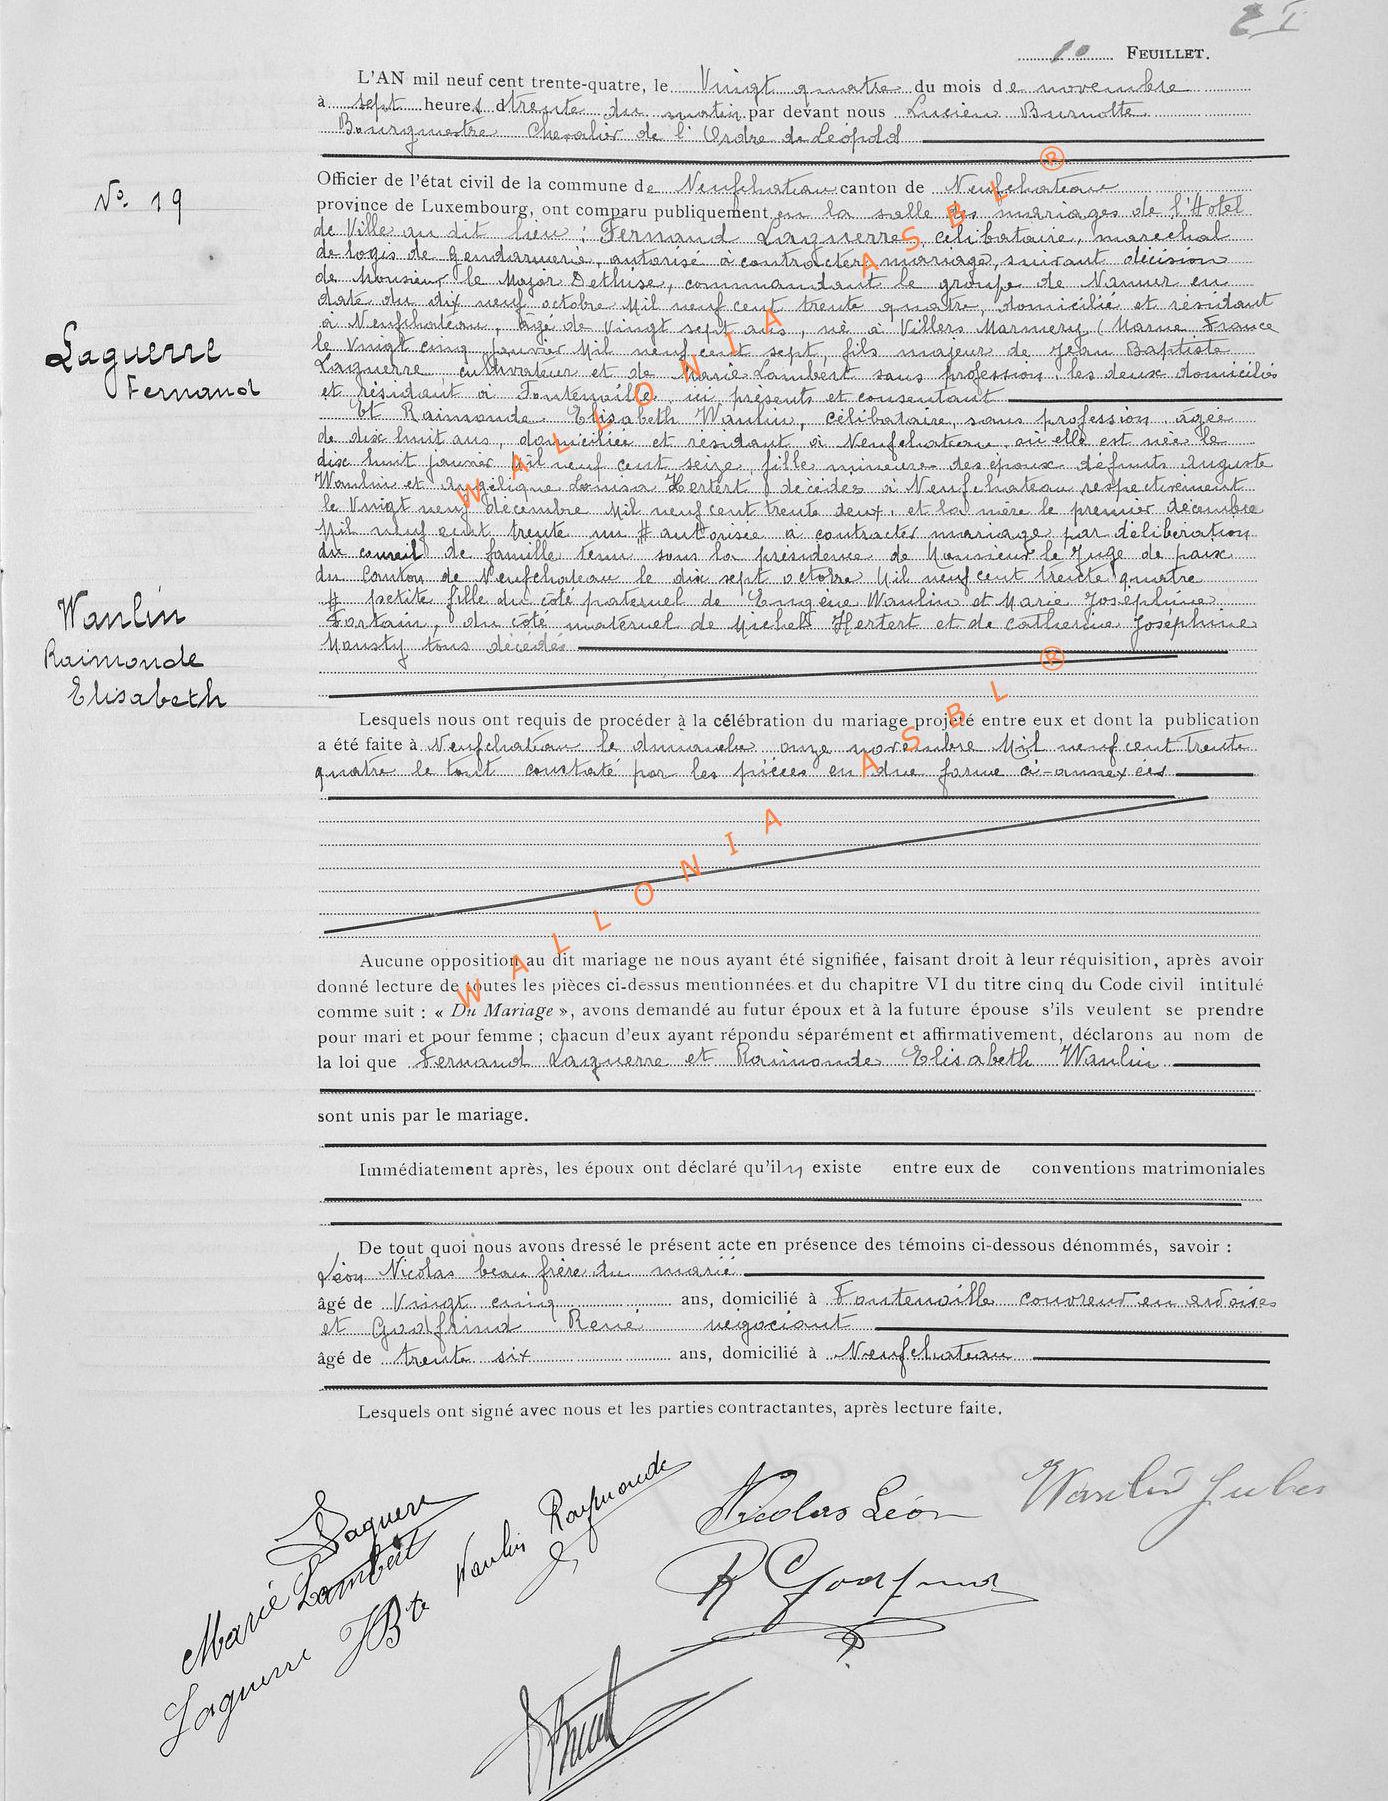 10 FEUILLET.
L'AN mil neuf cent trente-quatre, le Vingt quatre du mois de novembre
à sept heures trente du matin par devant nous Lucien Burnotte
Bourgmestre Chevalier de l'Ordre de Léopold
N° 19
Officier de l'état civil de la commune de Neufchateau canton de Neufchateau
province de Luxembourg, ont comparu publiquement en la salle des mariages de l'Hotel
de Ville au dit lieu : Fernand Laguerre, célibataire, maréchal
de logis de gendarmerie, autorisé à contracter mariage, suivant décision
de Monsieur le Major Dethise, commandant le groupe de Namur en
date du dix neuf octobre Mil neuf cent trente quatre, domicilié et résidant
à Neufchateau, âgé de Vingt sept ans, né à Villers Marmery (Marne France
le Vingt cinq janvier Mil neuf cent sept, fils majeur de Jean Baptiste
Laguerre
Fernand
Laguerre cultivateur et de Marie Lambert sans profession, les deux domiciliés
et résidant à Fontenoille, ici présents et consentant
Et Raimonde Elisabeth Wanlin, célibataire, sans profession, âgée
de dix huit ans, domiciliée et résidant à Neufchateau, où elle est née le
dix huit janvier Mil neuf cent seize, fille mineure des époux défunts Auguste
Wanlin et Angélique Louisa Hertert décédés à Neufchateau respectivement
le Vingt neuf décembre Mil neuf cent trente deux, et la mère le premier décembre
Mil neuf cent trente un # autorisée à contracter mariage par délibération
du conseil de famille tenu sous la présidence de Monsieur le Juge de paix
du Canton de Neufchateau le dix sept octobre Mil neuf cent trente quatre
# petite fille du côté paternel de Eugène Wanlin et Marie Joséphine
Fortain, du côté maternel de Michel Hertert et de Catherine Joséphine
Mousty tous décédés
Wanlin
Raimonde
Elisabeth
Lesquels nous ont requis de procéder à la célébration du mariage projeté entre eux et dont la publication
a été faite à Neufchateau le dimanche onze novembre Mil neuf cent trente
quatre le tout constaté par les pièces en due forme ci-annexées
Aucune opposition au dit mariage ne nous ayant été signifiée, faisant droit à leur réquisition, après avoir
donné lecture de toutes les pièces ci-dessus mentionnées et du chapitre VI du titre cinq du Code civil intitulé
comme suit : « Du Mariage », avons demandé au futur époux et à la future épouse s'ils veulent se prendre
pour mari et pour femme ; chacun d'eux ayant répondu séparément et affirmativement, déclarons au nom de
la loi que Fernand Laguerre et Raimonde Elisabeth Wanlin
sont unis par le mariage.
Immédiatement après, les époux ont déclaré qu'il n existe entre eux de conventions matrimoniales
De tout quoi nous avons dressé le présent acte en présence des témoins ci-dessous dénommés, savoir :
Léon Nicolas beau frère du marié
âgé de Vingt cinq ans, domicilié à Fontenoille couvreur en ardoises
et Godfrind René négociant
âgé de trente six ans, domicilié à Neufchateau
Lesquels ont signé avec nous et les parties contractantes, après lecture faite.
Laguerre
Marie Lambert
Laguerre JBte
Wanlin Raymonde
Nicolas Léon
Wanlin Jules
R Godfrind
WALLONIA ASBL ®
WALLONIA ASBL ®